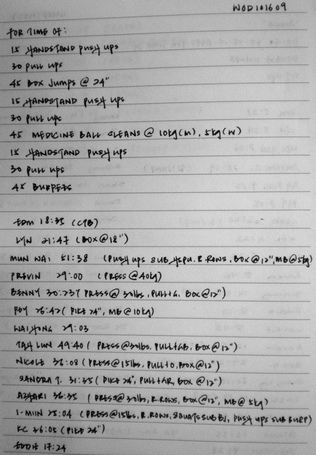 WOD 101609
FOR TIME OF:
15 HANDSTAND PUSH UPS
30 PULL UPS
45 BOX JUMPS @ 24"
15 HANDSTAND PUSH UPS
30 PULL UPS
45 MEDICINE BALL CLEANS @ 10kg(M), 5kg(W)
15 HANDSTAND PUSH UPS
30 PULL UPS
45 BURPEES
EDM 18:35 (CTB)
LYN 21:47 (BOX@18")
MUN WAI 51:38 (PUSH UPS SUB HSPU, R.ROWS, BOX@12", MB@5kg)
PREVIN 29:00 (PRESS@40kg)
BENNY 30:23? PRESS@30lbs, BOX@12")
ROY 26:42 (PIKE 24", MB@10kg)
29:03
TAH LUN 49:40 (PRESS@30lbs, BOX@12")
NICOLE 36:08 (PRESS@15lbs, BOX@12")
SANDRA T. 31:25 (PIKE 24", BOX@12")
36:35 (PRESS@30lbs, R.ROWS, BOX@12", MB@5kg)
I-MIN 25:04 (PRESS@15lbs, R.ROWS, SQUATS SUB BJ, PUSH UPS SUB BURP)
KC 26:05 (PIKE 24")
EDDIE 17:24